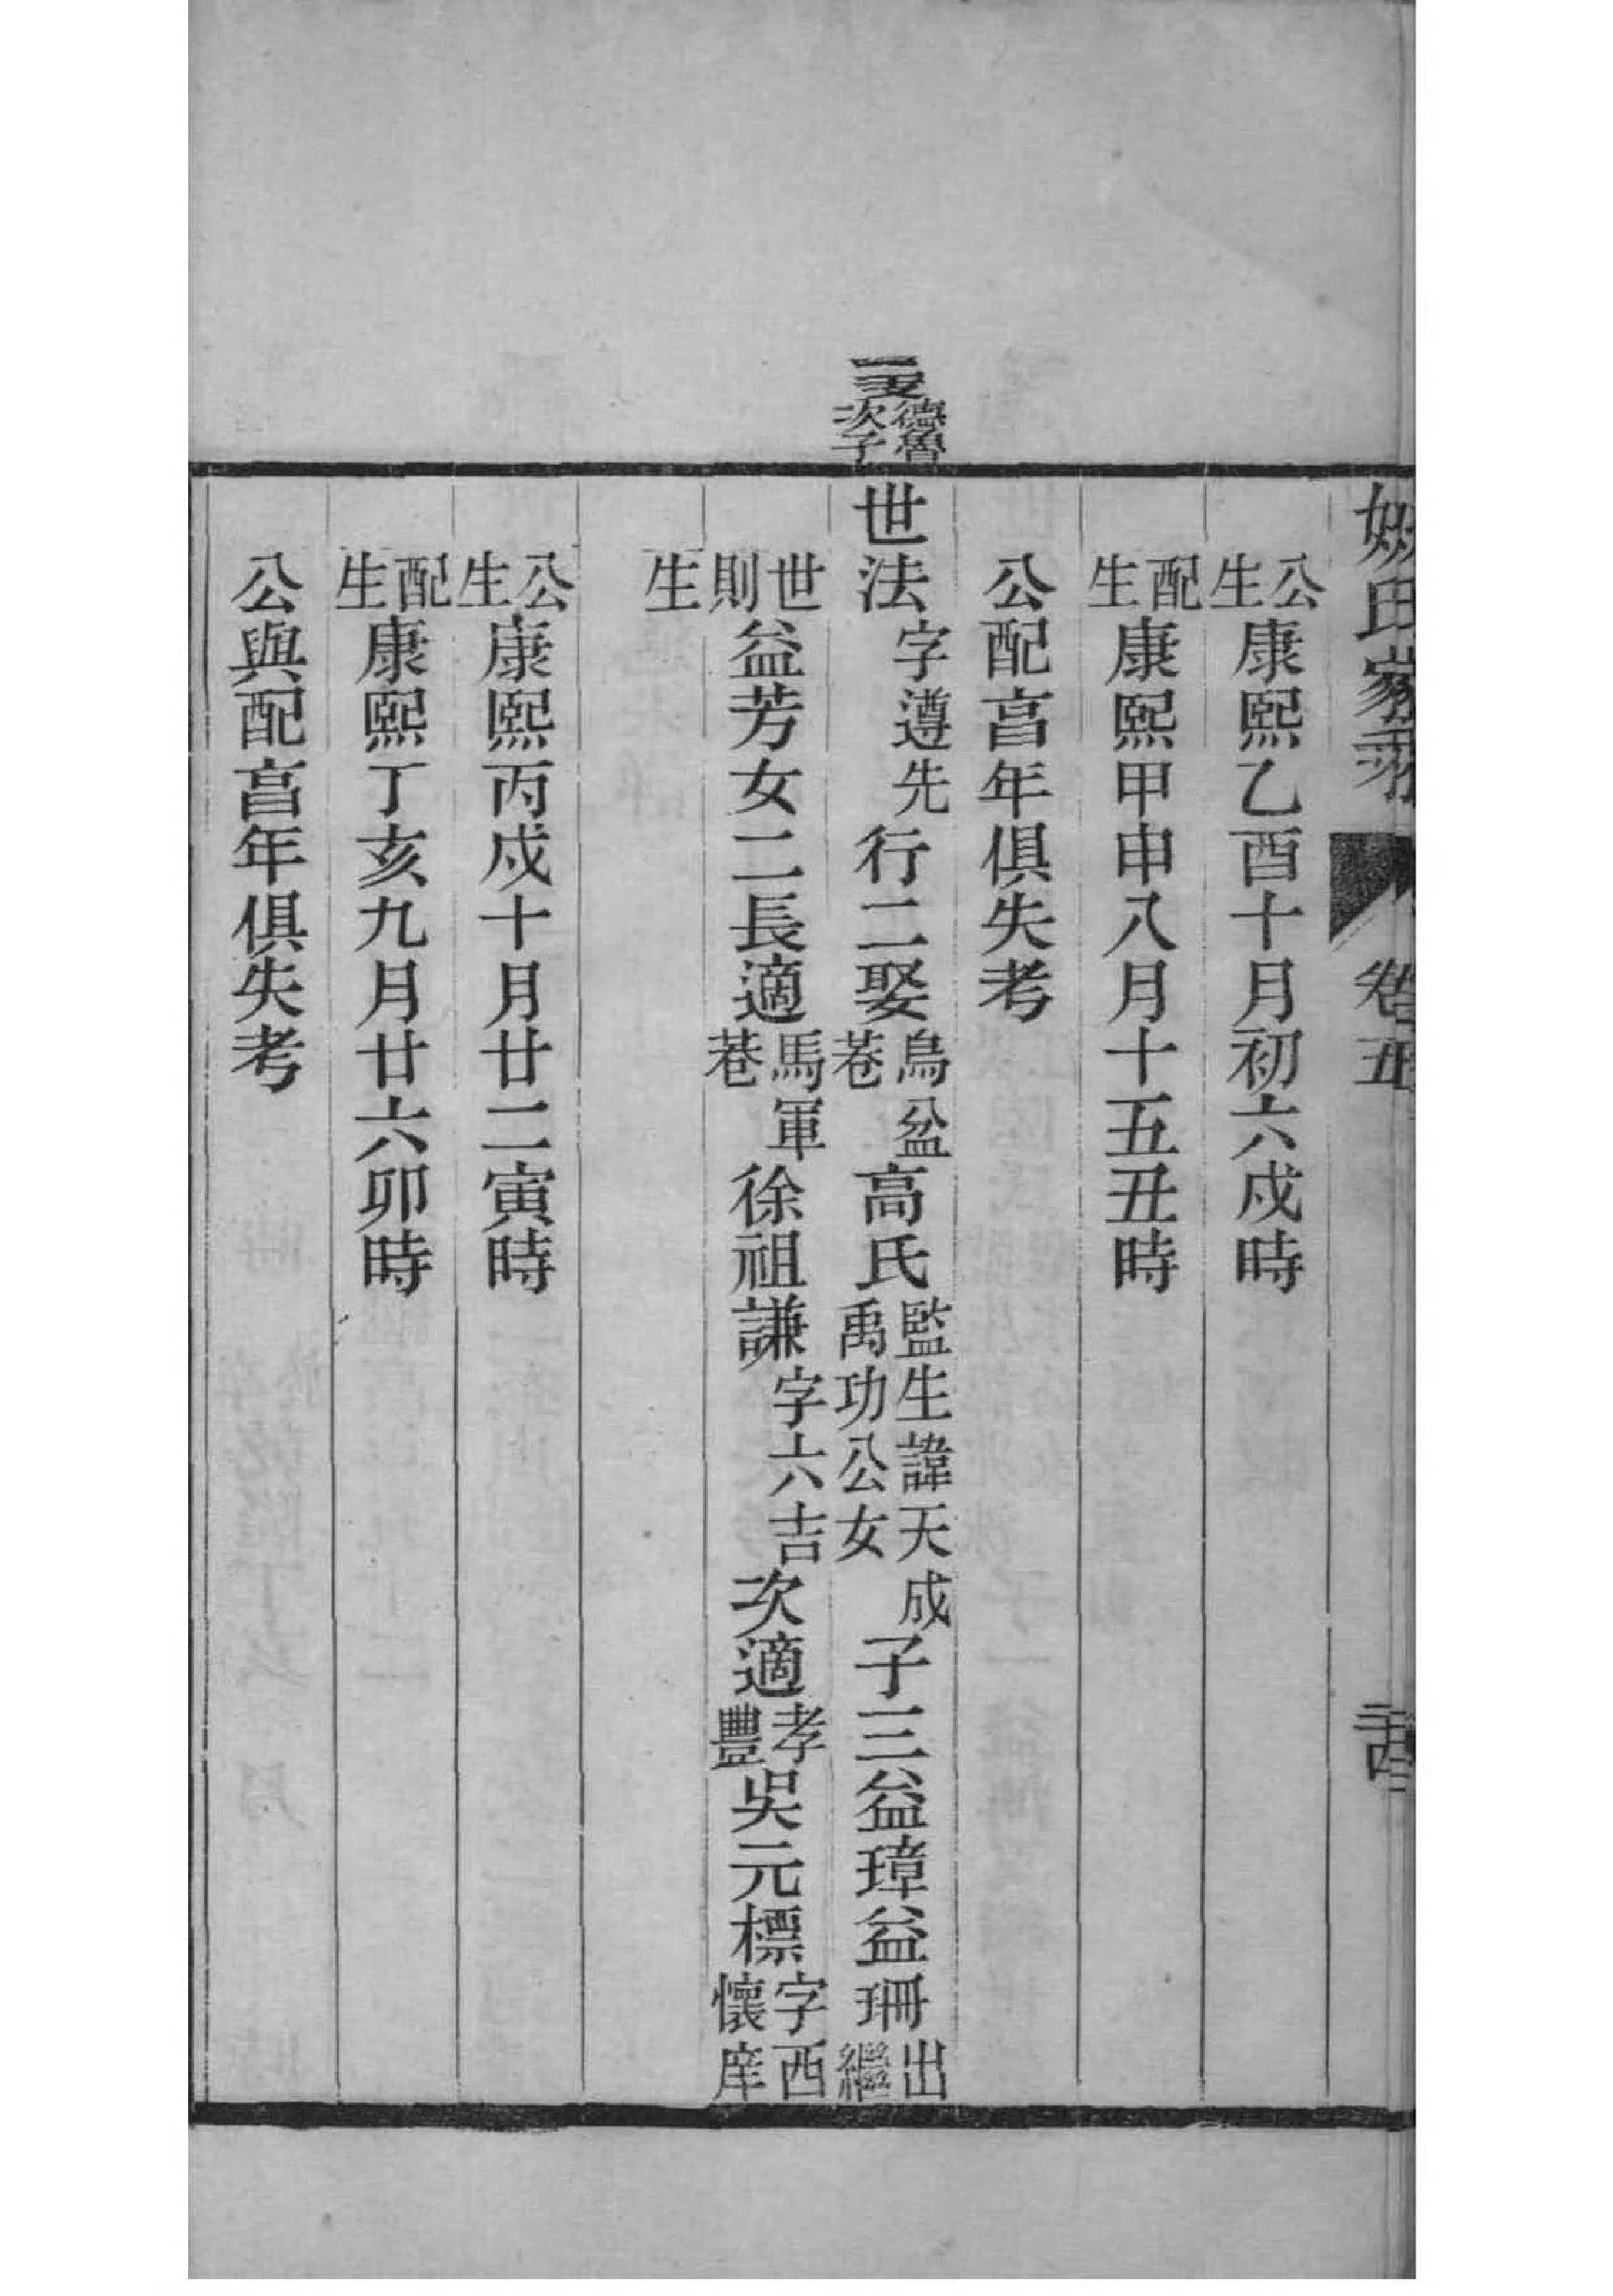 姒氏家乘 卷五
德魯次子
公生康熙乙酉十月初六戌時
配生康熙甲申八月十五丑時
公配亯年俱失考
世法字遵先行二娶鳥盆巷高氏監生諱天成禹功公女子三益璋益珊出繼
世則益芳女二長適馬軍巷徐祖謙字六吉次適孝豐吳元標字西懷庠
生
公生康熙丙戌十月廿二寅時
配生康熙丁亥九月廿六卯時
公與配亯年俱失考